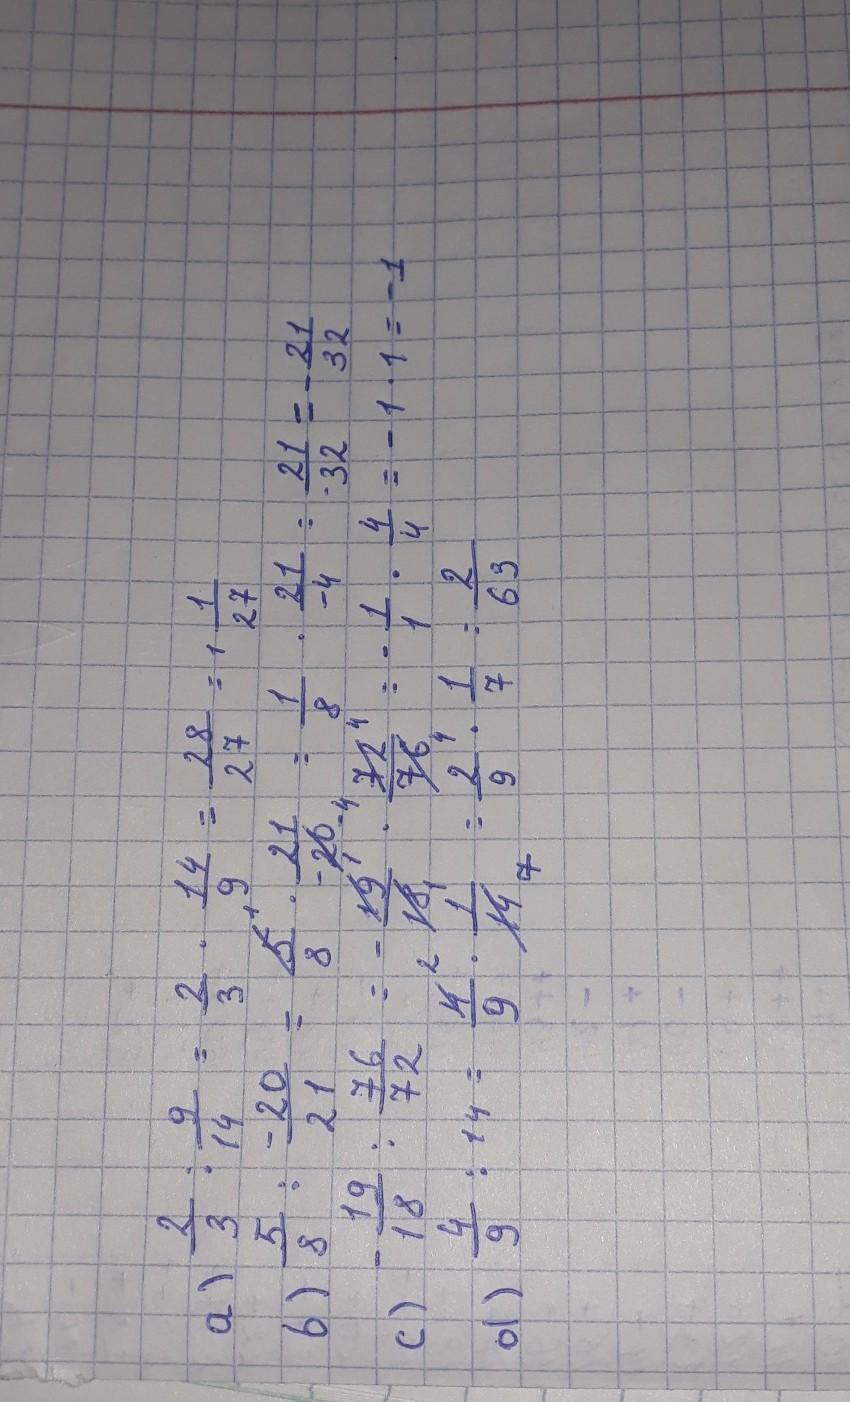 a) 2/3 : 9/14 = 2/3 · 14/9 = 28/27 = 1 1/27
b) 5/8 : -20/21 = 5/8 · 21/-20 = 1/8 · 21/-4 = 21/-32 = - 21/32
c) - 19/18 : 76/72 = - 19/18 · 72/76 = - 1/1 · 4/4 = - 1 · 1 = - 1
d) 4/9 : 14 = 4/9 · 1/14 = 2/9 · 1/7 = 2/63